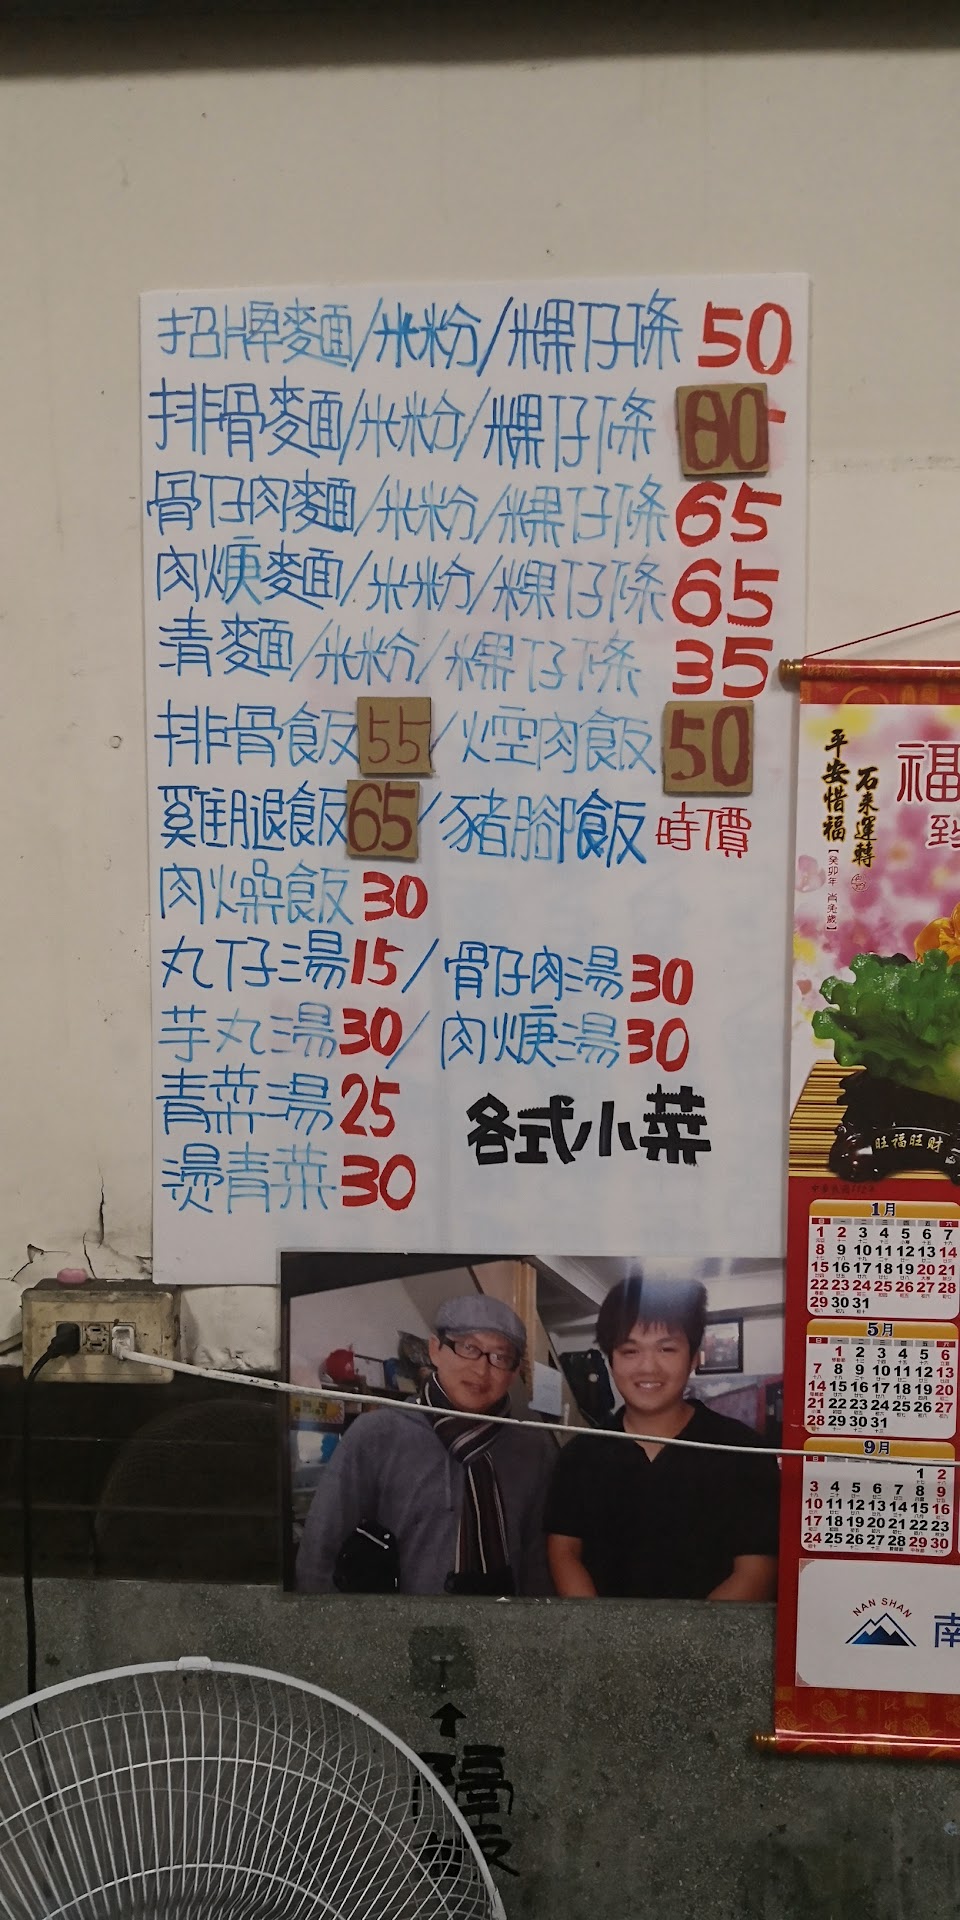 招牌麵/米粉/粿仔條 50
排骨麵/米粉/粿仔條 80
骨仔肉麵/米粉/粿仔條 65
肉焿麵/米粉/粿仔條 65
清麵/米粉/粿仔條 35
排骨飯 55/焢肉飯 50
雞腿飯 65/豬腳飯 時價
肉燥飯 30
丸仔湯 15/骨仔肉湯 30
芋丸湯 30/肉焿湯 30
青菜湯 25
燙青菜 30
各式小菜
平安惜福
石來運轉
【癸卯年 肖兔歲】
福
到
旺福旺財
1月
1 2 3 4 5 6 7
8 9 10 11 12 13 14
15 16 17 18 19 20 21
22 23 24 25 26 27 28
29 30 31
5月
1 2 3 4 5 6
7 8 9 10 11 12 13
14 15 16 17 18 19 20
21 22 23 24 25 26 27
28 29 30 31
9月
1 2
3 4 5 6 7 8 9
10 11 12 13 14 15 16
17 18 19 20 21 22 23
24 25 26 27 28 29 30
NAN SHAN
南